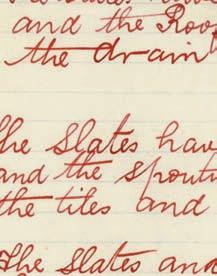 and the Roof
the drain
the Slates hav
and the spouti
the tiles and
the Slates and